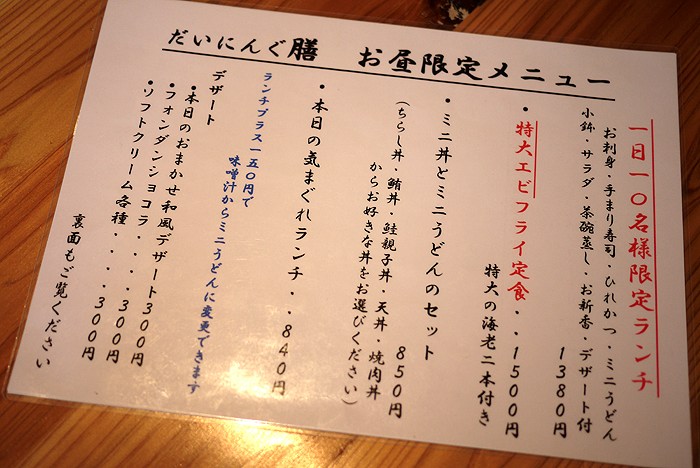 だいにんぐ膳 お昼限定メニュー
一日一〇名様限定ランチ
お刺身・手まり寿司・ひれかつ・ミニうどん
小鉢・サラダ・茶碗蒸し・お新香・デザート付
1380円
・特大エビフライ定食・・1500円
特大の海老二本付き
・ミニ丼とミニうどんのセット
850円
(ちらし丼・鮪丼・鮭親子丼・天丼・焼肉丼
からお好きな丼をお選びください)
・本日の気まぐれランチ・・840円
ランチプラス一五〇円で
味噌汁からミニうどんに変更できます
デザート
・本日のおまかせ和風デザート300円
・フォンダンショコラ・・・・300円
・ソフトクリーム各種・・・・300円
裏面もご覧ください